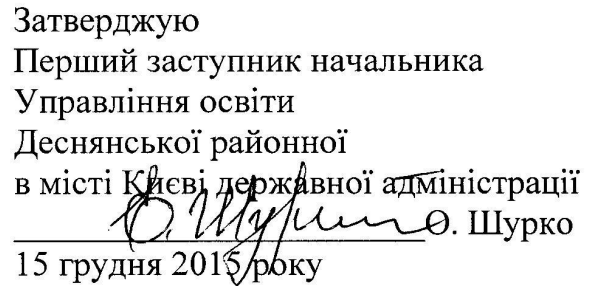 Затверджую
Перший заступник начальника
Управління освіти
Деснянської районної
в місті Києві державної адміністрації
О. Шурко
15 грудня 2015 року